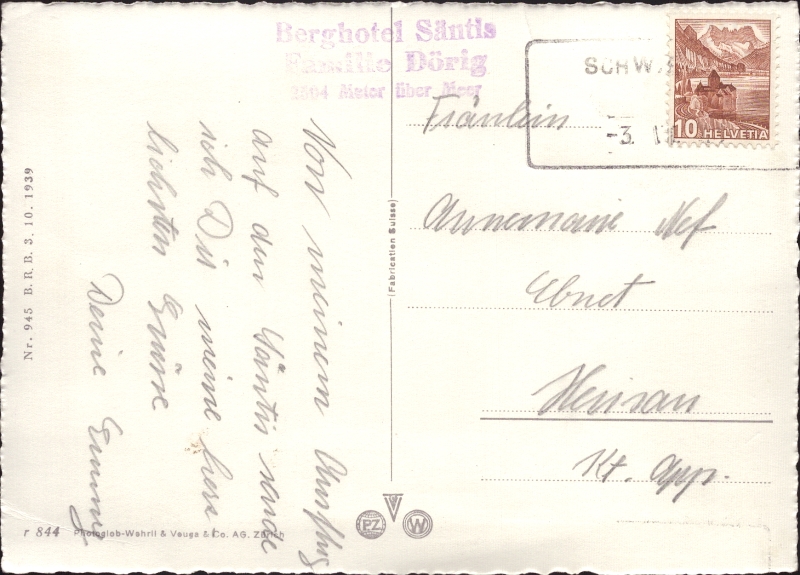 Berghotel Säntis
Familie Dörig
2504 Meter über Meer
SCHW
-3. VI
10 HELVETIA
Von meinem Ausflug
auf den Säntis sende
ich Dir meine herz
lichsten Grüsse
Deine Emmy
Fräulein
Annemarie Nef
Ebnet
Herisau
Kt. App.
(Fabrication Suisse)
Nr. 945 B. R. B. 3. 10. 1939
r 844 Photoglob-Wehrli & Vouga & Co. AG. Zürich
PZ
W